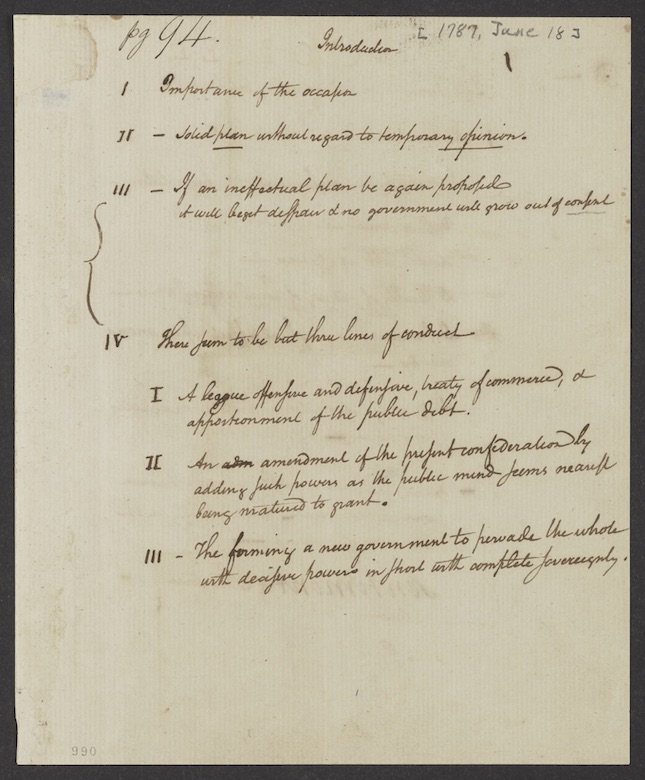 pg 94.
[1787, June 18]
Introduction
1
I Importance of the occasion
II — Solid plan without regard to temporary opinion.
III — If an ineffectual plan be again proposed
it will beget despair & no government will grow out of consent
IV There seem to be but three lines of conduct
I A league offensive and defensive, treaty of commerce, &
apportionment of the public debt.
II An adm amendment of the present confederation by
adding such powers as the public mind seems nearest
being matured to grant.
III — The forming a new government to pervade the whole
with decisive powers in short with complete sovereignty.
990